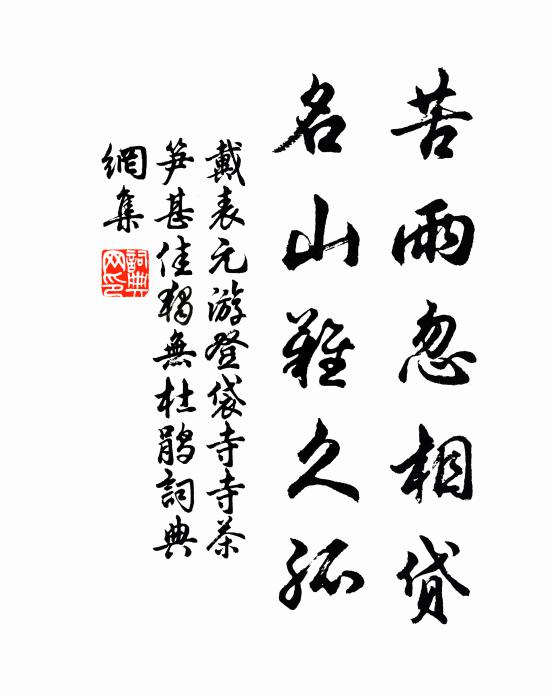 苦雨忽相貸
名山難久孤
戴表元游登袋寺寺茶
笋甚佳獨無杜鵑詞典
網集
詞典网印